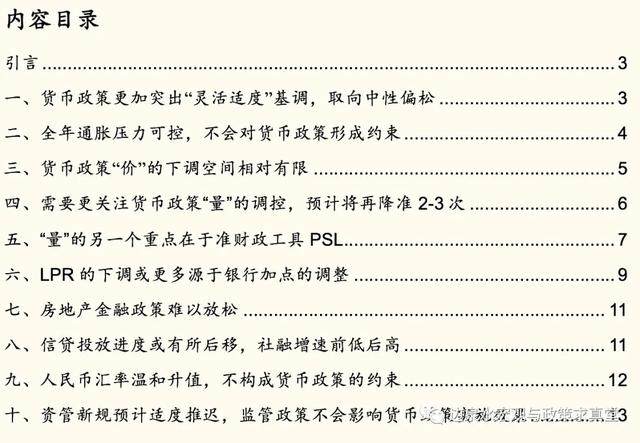 内容目录
引言 3
一、货币政策更加突出“灵活适度”基调，取向中性偏松 3
二、全年通胀压力可控，不会对货币政策形成约束 4
三、货币政策“价”的下调空间相对有限 5
四、需要更关注货币政策“量”的调控，预计将再降准 2-3 次 6
五、“量”的另一个重点在于准财政工具 PSL 7
六、LPR 的下调或更多源于银行加点的调整 9
七、房地产金融政策难以放松 11
八、信贷投放进度或有所后移，社融增速前低后高 11
九、人民币汇率温和升值，不构成货币政策的约束 12
十、资管新规预计适度推迟，监管政策不会影响货币政策 13